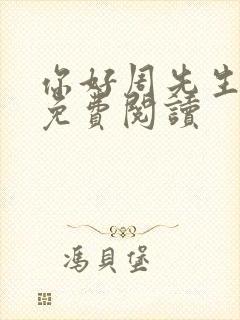 你好周先生
免費閱讀
馮貝堡